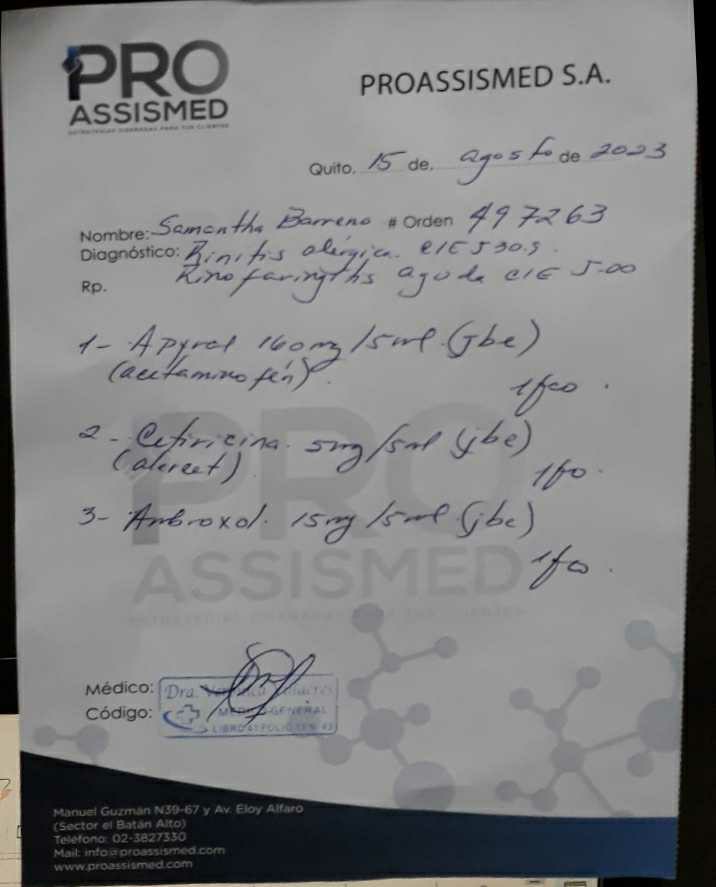 PRO
ASSISMED
ESTRATEGIAS DISEÑADAS PARA TUS CLIENTES
PROASSISMED S.A.
Quito, 15 de, agosto de 2023
Nombre: Samantha Barreno # Orden 497263
Diagnóstico: Rinitis alérgica. CIE J30.9.
Rp. Rinofaringitis aguda CIE J-00
1- Apyral 160mg/5ml (jbe)
(acetaminofén).
1fco.
2- Cetiricina. 5mg/5ml (jbe)
(alercet).
1fo.
3- Ambroxol. 15mg/5ml (jbe)
1fco.
PRO
ASSISMED
Médico: Dra.
Código: MEDICO GENERAL
LIBRO
Manuel Guzmán N39-67 y Av. Eloy Alfaro
(Sector el Batán Alto)
Teléfono: 02-3827330
Mail: info@proassismed.com
www.proassismed.com